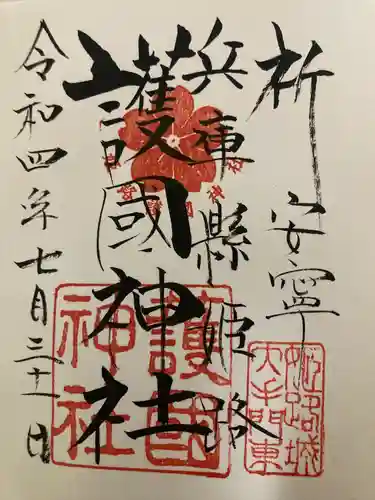 祈 安寧
兵庫縣姫路
護國神社
令和四年七月三十一日
護國
神社
姫路城
大手門東